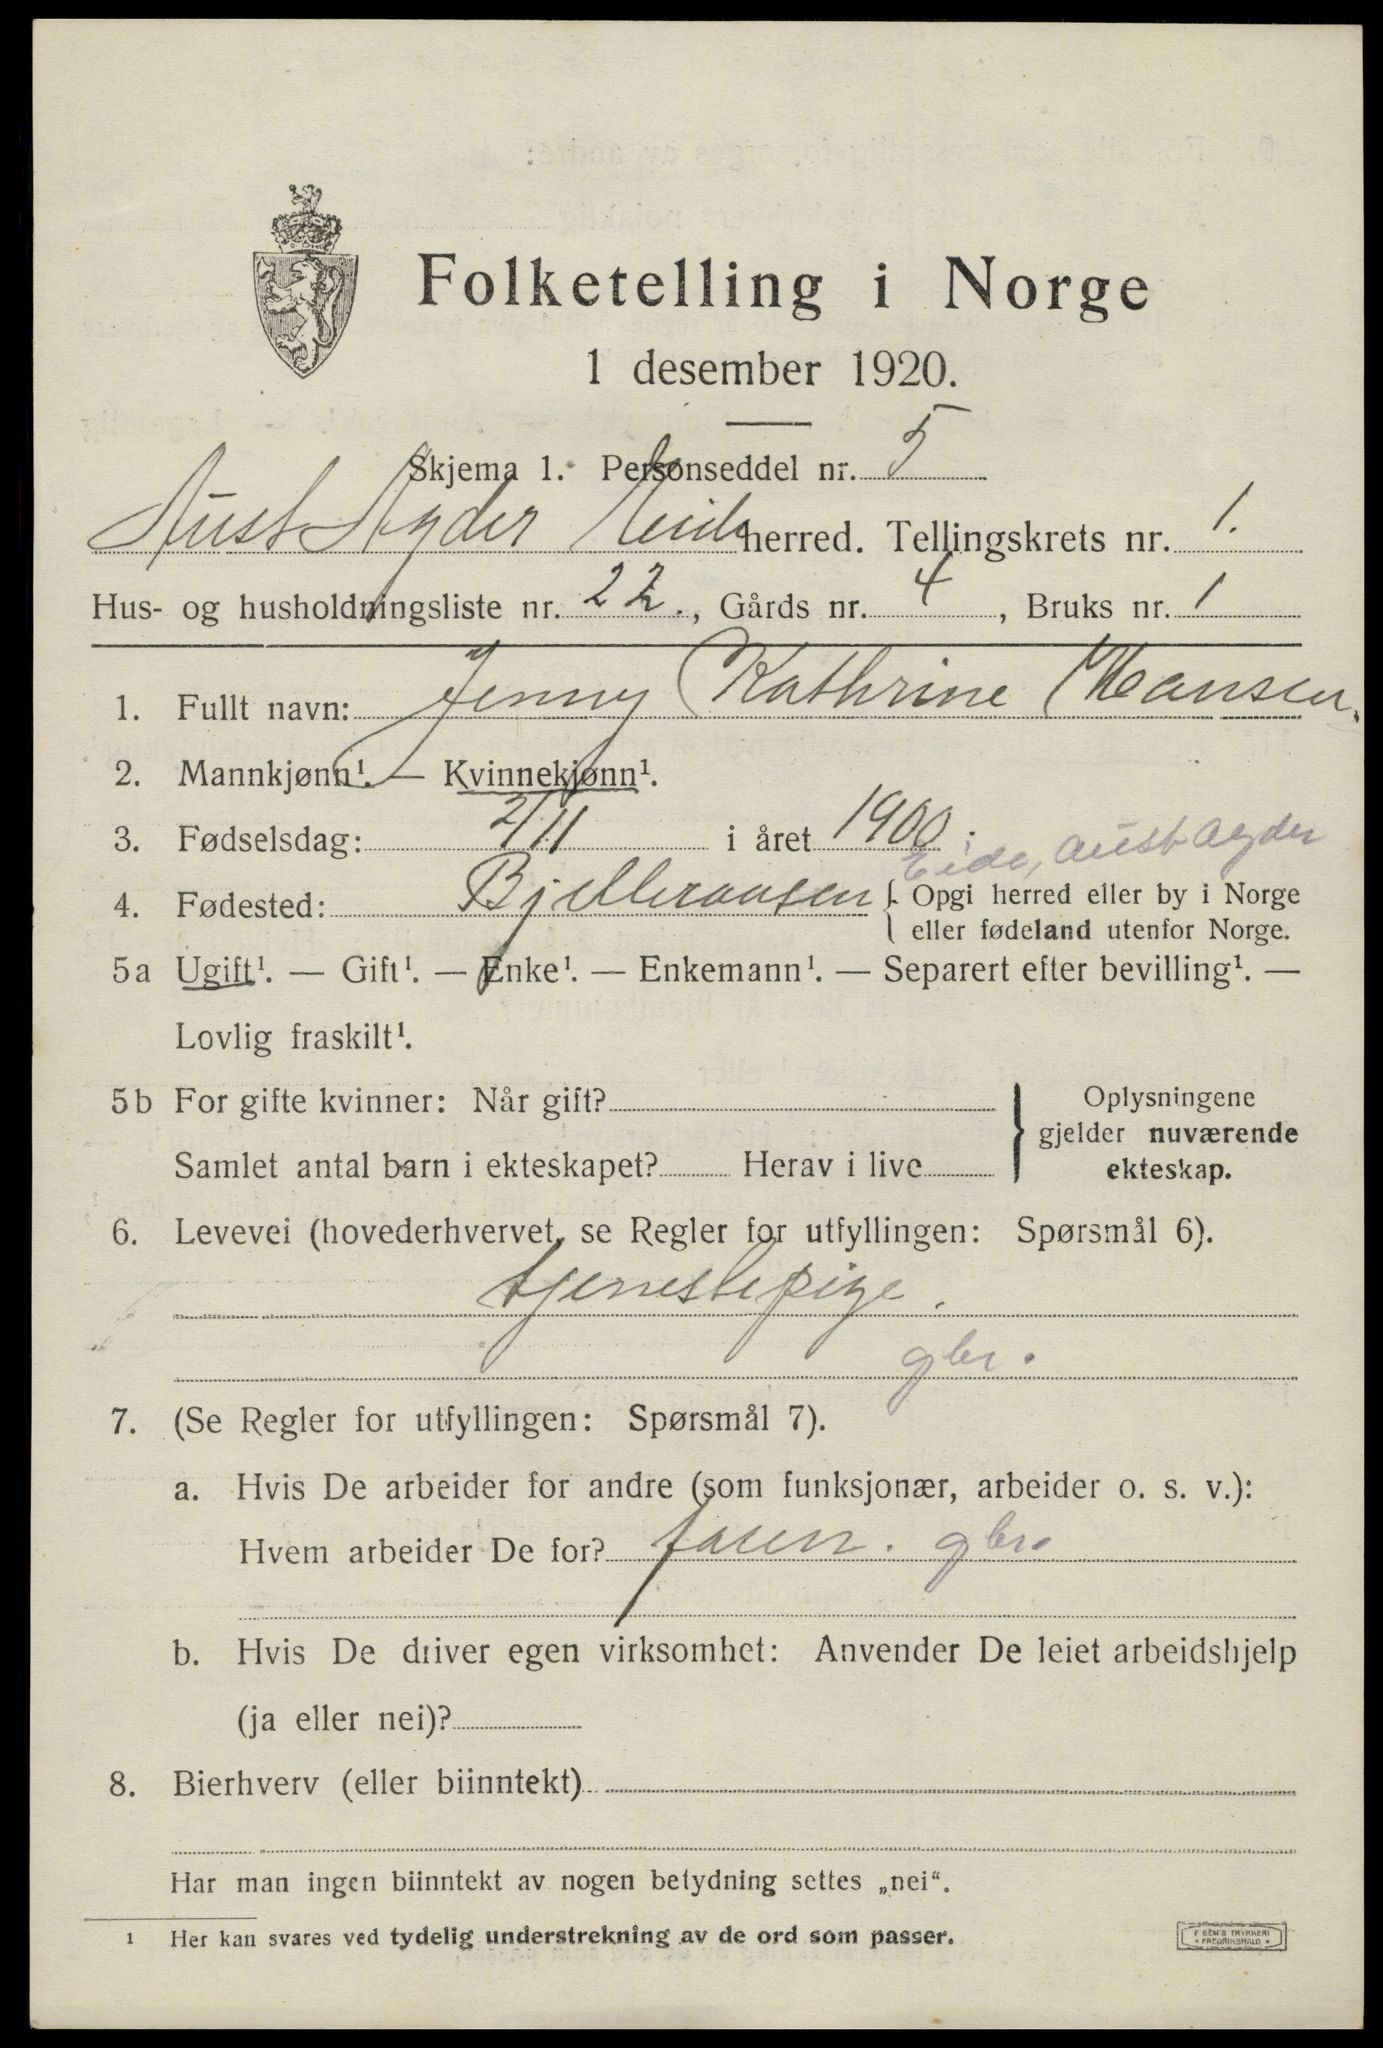 Folketelling i Norge
1 desember 1920.
Skjema 1. Personseddel nr. 5
Aust Agder Eide herred. Tellingskrets nr. 1.
Hus- og husholdningsliste nr. 22., Gårds nr. 4, Bruks nr. 1
1. Fullt navn: Jenny Kathrine Hansen.
2. Mannkjønn¹. — Kvinnekjønn¹.
3. Fødselsdag: 2/11 i året 1900.
Eide, Aust Agder
4. Fødested: Bjelleraasen { Opgi herred eller by i Norge
eller fødeland utenfor Norge.
5a Ugift¹. — Gift¹. — Enke¹. — Enkemann¹. — Separert efter bevilling¹. —
Lovlig fraskilt¹.
5b For gifte kvinner: Når gift?
Samlet antal barn i ekteskapet? Herav i live
} Oplysningene
gjelder nuværende
ekteskap.
6. Levevei (hovederhvervet, se Regler for utfyllingen: Spørsmål 6).
tjenestepige.
gbr.
7. (Se Regler for utfyllingen: Spørsmål 7).
a. Hvis De arbeider for andre (som funksjonær, arbeider o. s. v.):
Hvem arbeider De for? faren. gbr.
b. Hvis De driver egen virksomhet: Anvender De leiet arbeidshjelp
(ja eller nei)?
8. Bierhverv (eller biinntekt)
Har man ingen biinntekt av nogen betydning settes „nei“.
1 Her kan svares ved tydelig understrekning av de ord som passer.
E SEM'S TRYKKERI
FREDRIKSHALD